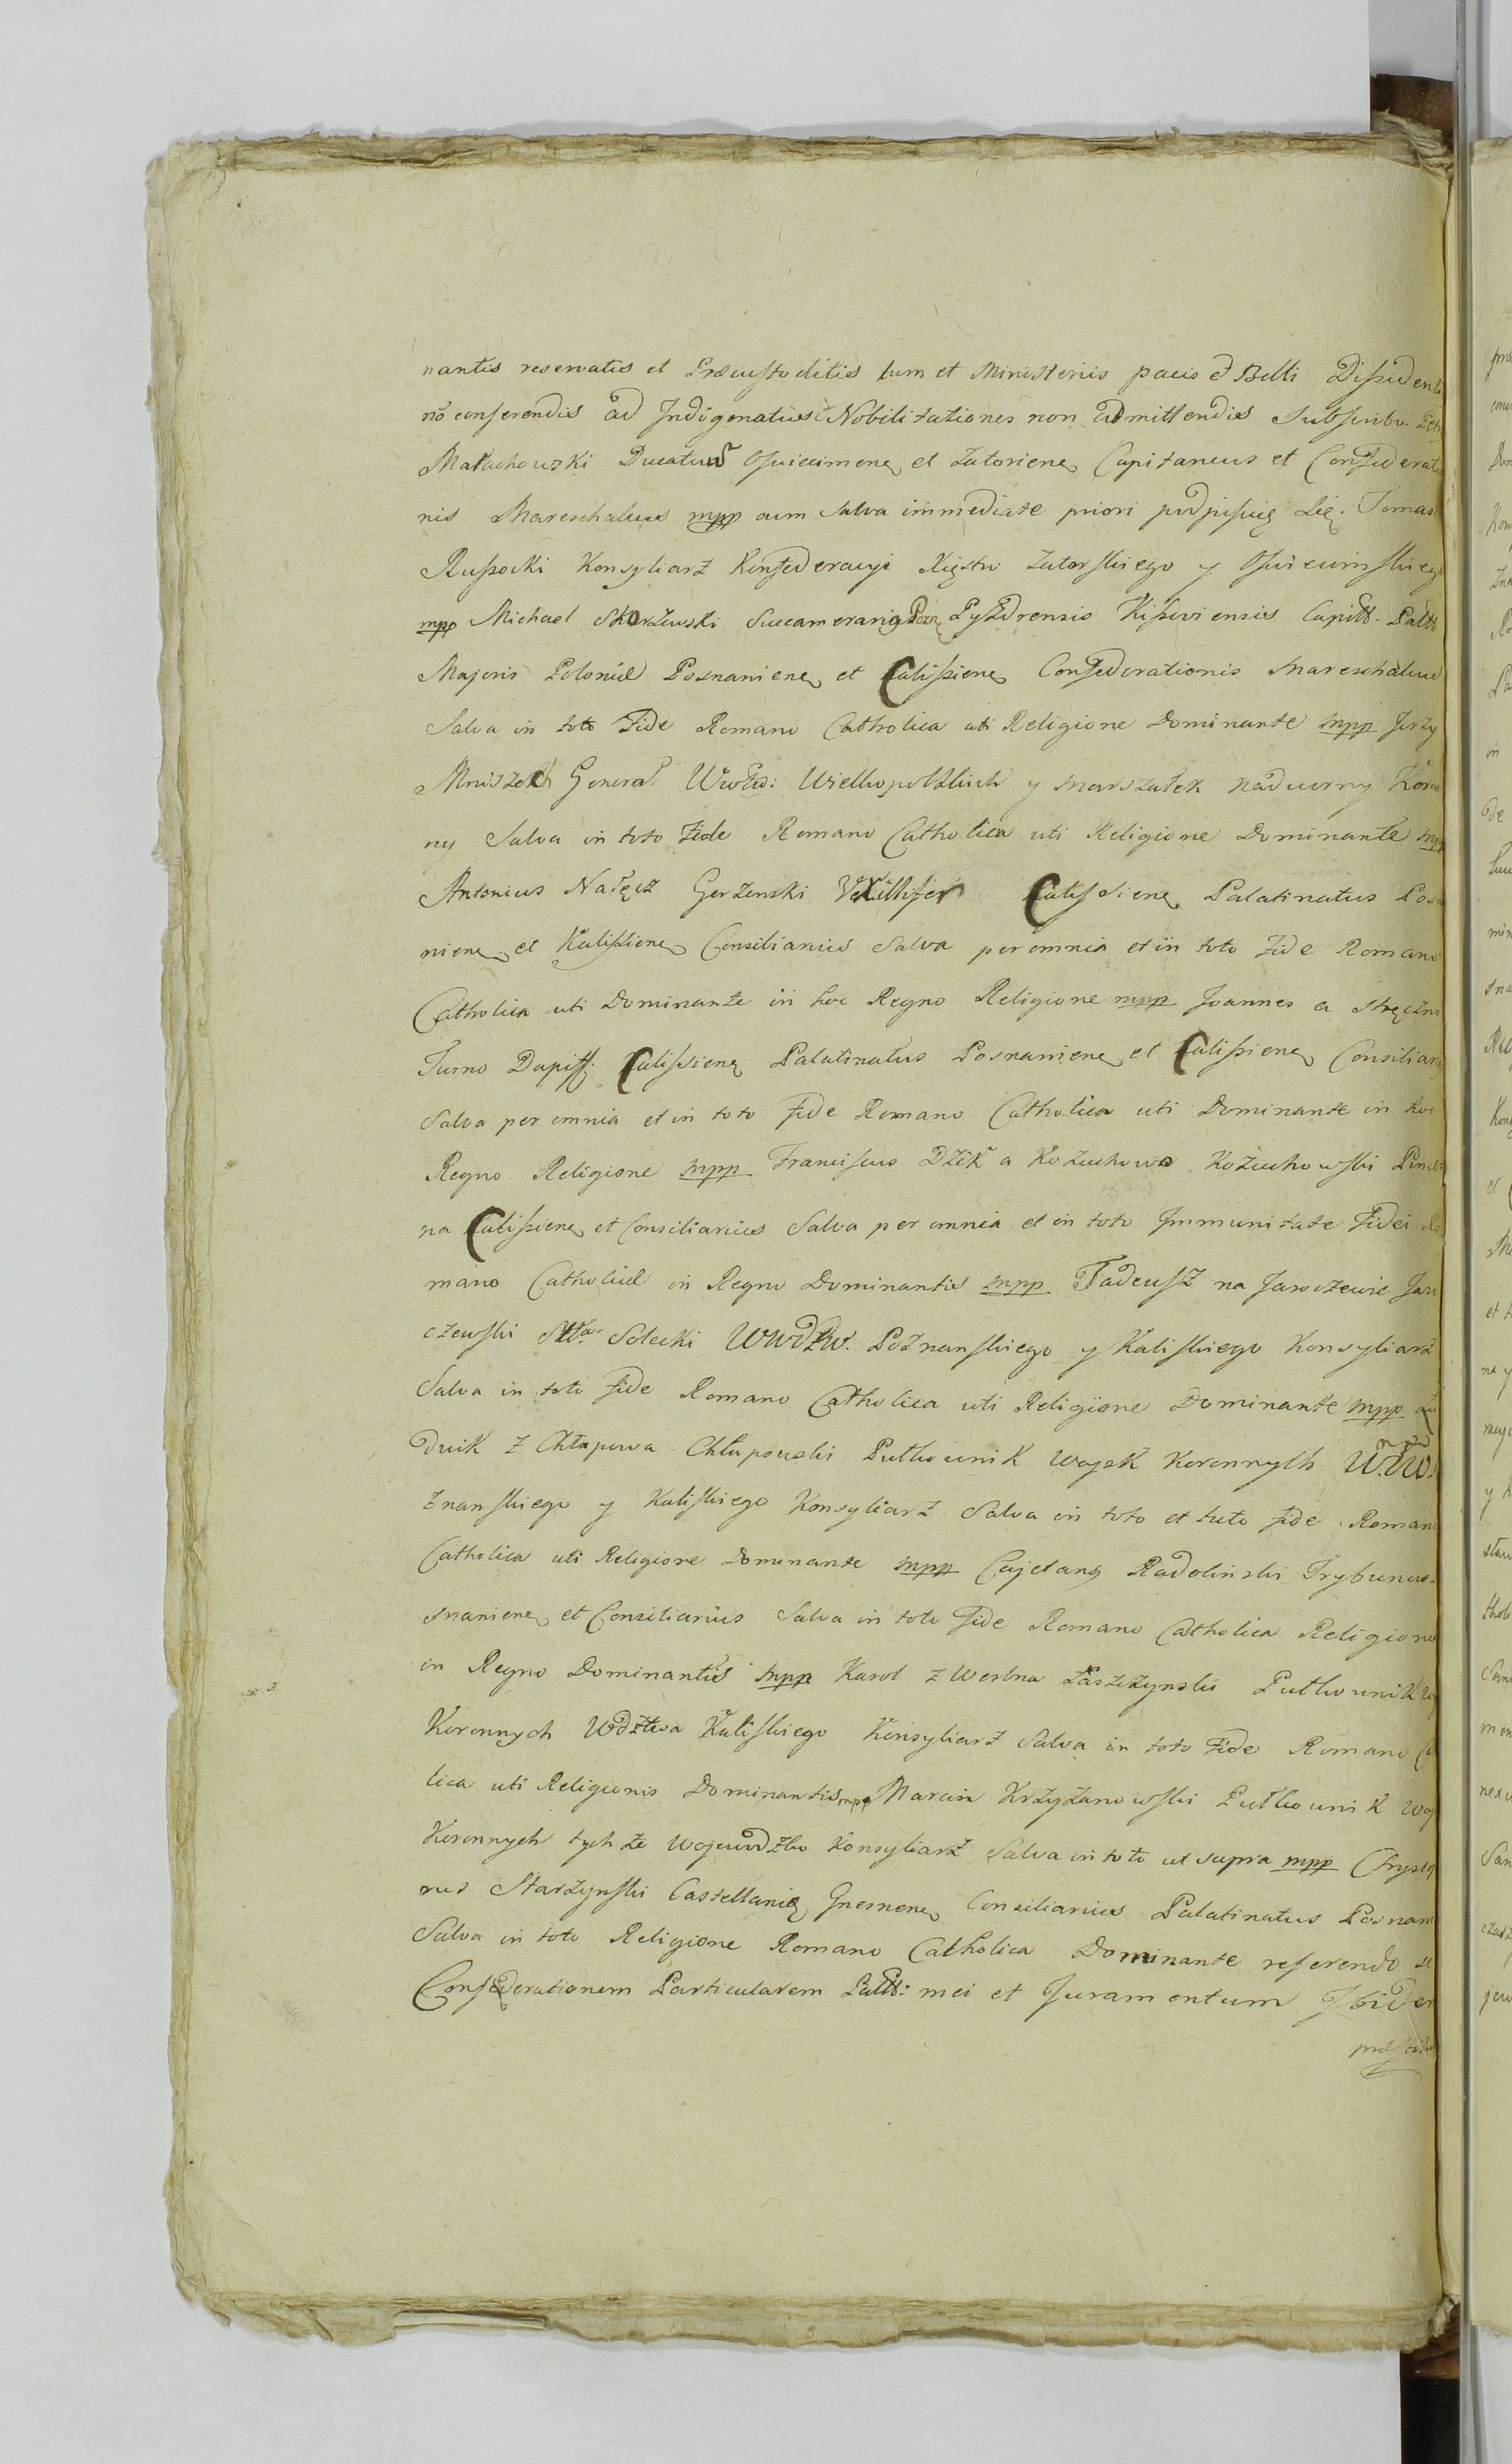 nantis reservatis et Præcustoditis tum et Ministeriis pacis et Belli Dissidenti
nõ conferendis ad Indigenatus Nobilitationes non admittendis Subscribo.
Małachowski Ducatuũ Osviecimenę et Zatorienę Capitaneus et Confederatio
nis Mareschalus mpp cum salva immediate priori podpisuię Się. Tomasz
Russocki Konsyliarz Konfederacyi Xięstw Zatorskiego y Osviecimskiego
mpp Michael Skorzewski Succamerarig Pozn Pyzdrensis Kiszeviensis Capitt. Palttt
Majoris Poloniæ Posnanienę et Calissienę Confederationis Mareschalus
Salva in toto Fide Romano Catholica uti Religione Dominante mpp Jerzy
Mniszech Generał Wiolw: Wielkopolskich y Marszałek nadworny Koron
ny Salva in toto Fide Romano Catholica uti Religione Dominante mpp
Antonius Nałęcz Gorzenski Vexillifer Calissienę Palatinatus Posn
nienę et Kalissienę Consiliarius Salva per omnia et in toto Fide Romano
Catholica uti Dominante in hoc Regno Religione mpp Joannes a
Turno Dapiff. Calissienę Palatinatus Posnanienę et Calissienę Consiliarig
Salva per omnia et in toto Fide Romano Catholica uti Dominante in hoc
Regno Religione mpp Franciscus Dzik a Kozuchowa Kozuchowski Pincer
na Calissienę et Consiliarius Salva per omnia et in toto Immunitate Fidei Ro
mano Catholicæ in Regno Dominantis mpp Tadeusz na Jaroczewie Jaro
czewski Sttta Solecki WWdztw. Poznanskiego y Kaliskiego Konsyliarz
Salva in toto Fide Romano Catholica uti Religione Dominante mpp Lu
dwik z Chłapowa Chłapowski Pułkownik woysk Koronnych
znanskiego y Kaliskiego Konsyliarz Salva in toto et tuto fide Romano
Catholica uti Religione Dominante mpp Cajetang Radolinski Trybunus
snanienę et Consiliarius Salva in toto Fide Romano Catholica Religione
in Regno Dominantis mpp Karol z Werbna Paszczynski Pułkownik Wo
Koronnych Wdztwa Kaliskiego Konsyliarz Salva in toto Fide Romano Ca
lica uti Religionis Dominantis mpp Marcin Krzyzanowski Pułkownik Woy
Koronnych tych ze wojewodztw Konsyliarz Salva in toto ut supra mpp Chrysto
rus Starzynski Castellanię Gnesnenę Consiliarius Palatinatus Posnani
Salva in toto Religione Romano Catholica Dominante referendo se
Confederationem Particularem Paltt: mei et Juramentum Ibidem